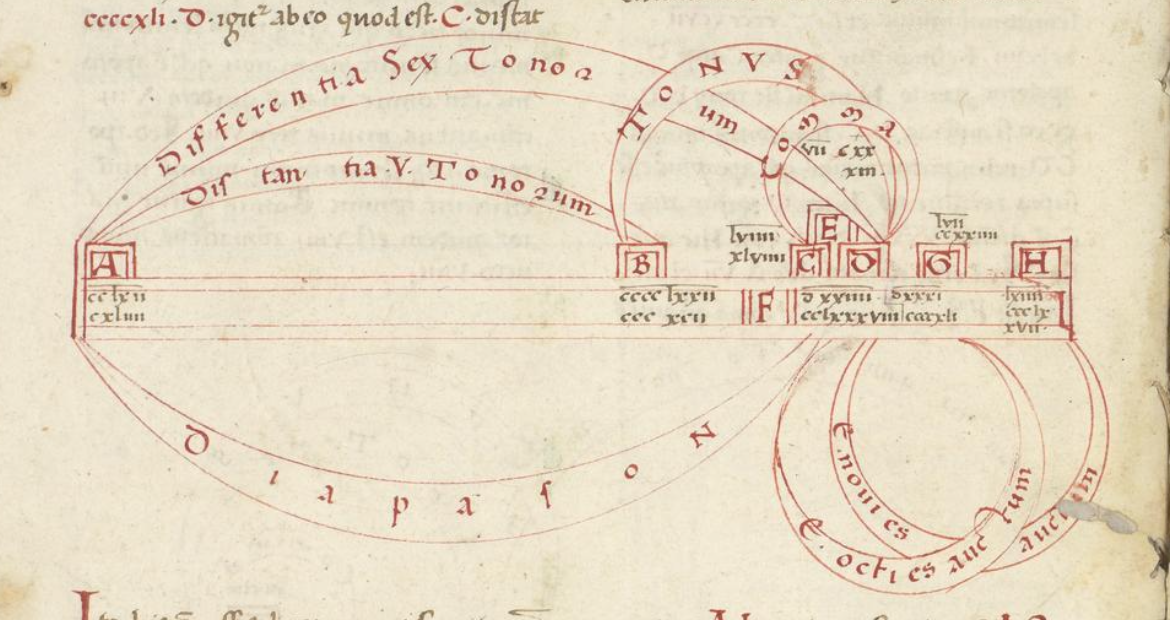 ccccxli. D. igit ab eo quod est. C. distat
Differentia Sex Tonoꝝ
TONVS
Distantia.V.Tonoꝝum
Comma
vii cxx
xiii
lviiii
xlviiii
E
lvii
ccxxiiii
A
B
C
D
G
H
cclxii
cxliiii
cccc lxxii
ccc xcii
F
d xxiiii
cclxxxviii
dxxxi
ccccxli
lxiiii
ccclx
xvii
Diapason
E novies auctum
E. octies auctum